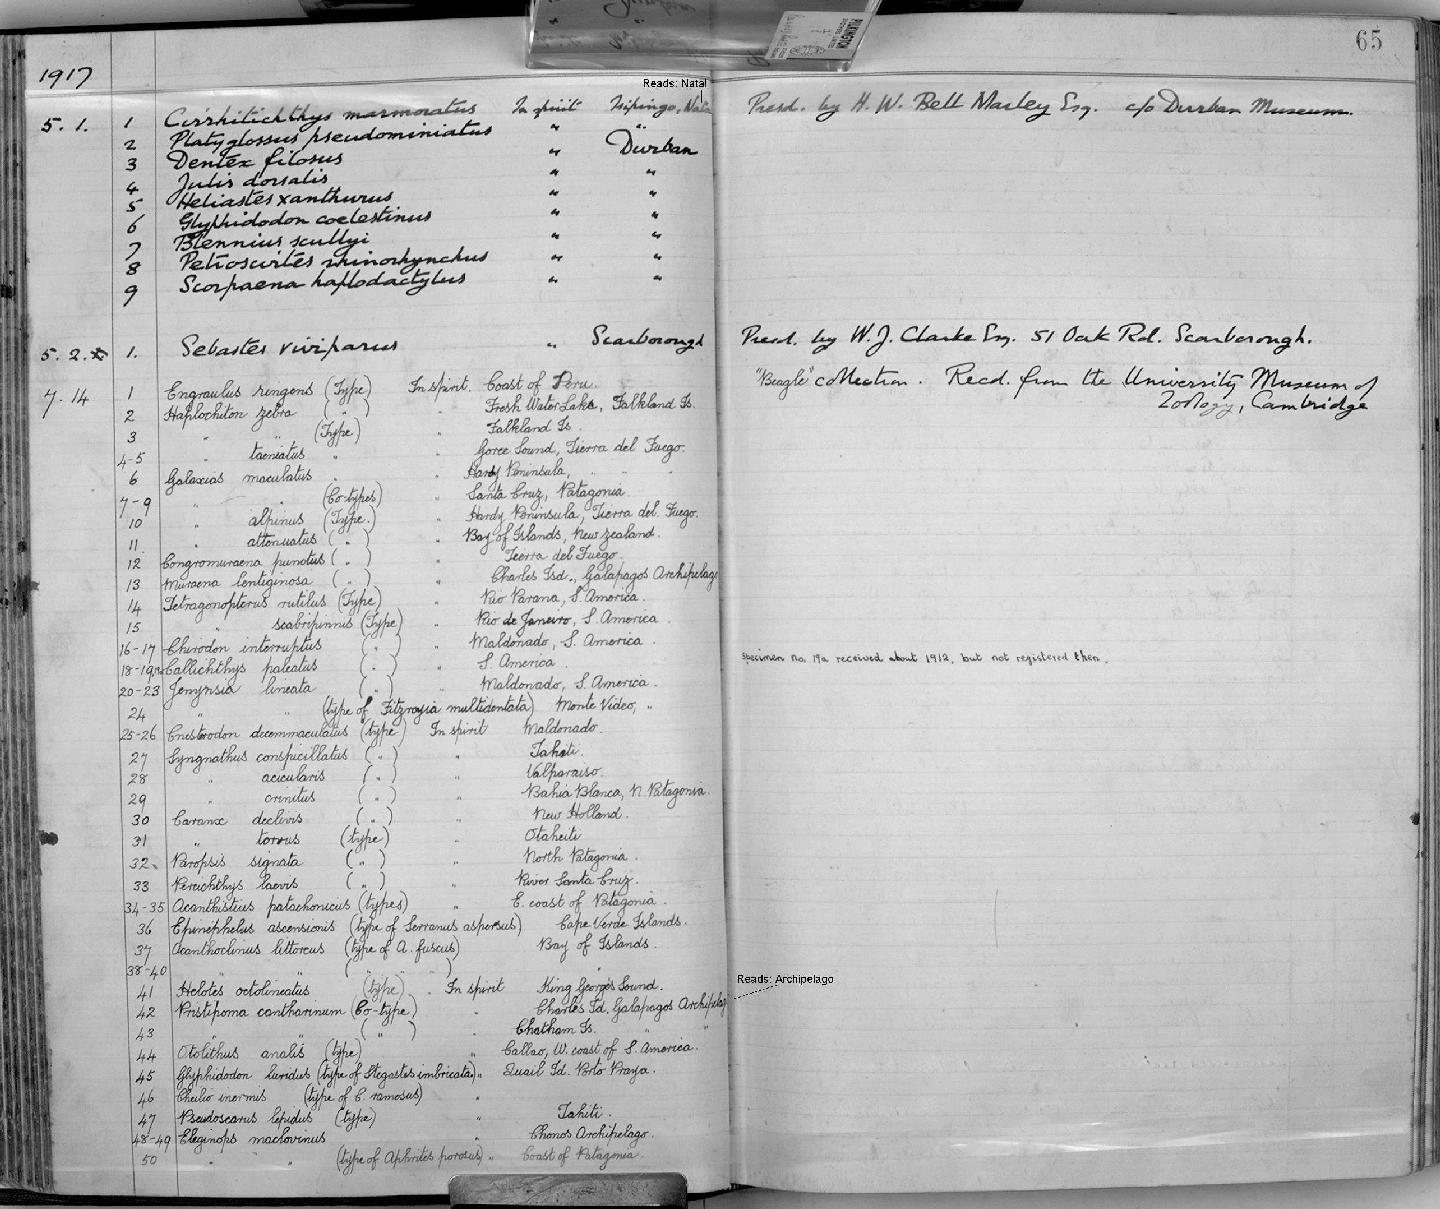 65
1917
Reads: Natal
5. 1. 1 Cirrhitichthys marmoratus In spirit Isipingo, Natal Presd. by H. W. Bell Marley Esq. c/o Durban Museum.
2 Platyglossus pseudominiatus " "
3 Dentex filosus " Durban
4 Julis dorsalis " "
5 Heliastes xanthurus " "
6 Glyphidodon coelestinus " "
7 Blennius scullyi " "
8 Petroscirtes rhinorhynchus " "
9 Scorpaena haplodactylus " "
5. 2. 1. Sebastes viviparus " Scarborough Presd. by W. J. Clarke Esq. 51 Oak Rd. Scarborough.
7. 14 1 Engraulus ringens (Type) In spirit. Coast of Peru. "Beagle" collection. Recd. from the University Museum of
Zoology, Cambridge
2 Haplochiton zebra ( " ) " Fresh Water Lake, Falkland Is.
3 " " (Type) " Falkland Is.
4-5 " taeniatus " " Goree Sound, Tierra del Fuego.
6 Galaxias maculatus " " Hardy Peninsula, " " "
7-9 " " (Co-types) " Santa Cruz, Patagonia.
10 " alpinus (Type.) " Hardy Peninsula, Tierra del Fuego.
11 " attenuatus ( " ) " Bay of Islands, New Zealand.
12 Congromuraena punctus ( " ) " Tierra del Fuego.
13 Muraena lentiginosa ( " ) " Charles Isd., Galapagos Archipelago
14 Tetragonopterus rutilus (Type) " Rio Parana, S. America.
15 " scabripinnis (Type) " Rio de Janeiro, S. America.
16-17 Chirodon interruptus ( " ) " Maldonado, S. America.
18-19,19a Callichthys paleatus ( " ) " S. America. Specimen no. 19a received about 1912, but not registered then.
20-23 Jenynsia lineata ( " ) " Maldonado, S. America.
24 " " (type of Fitzroyia multidentata) Monte Video, "
25-26 Cnesterodon decemmaculatus (type) In spirit Maldonado.
27 Syngnathus conspicillatus ( " ) " Tahiti.
28 " acicularis ( " ) " Valparaiso.
29 " crinitus ( " ) " Bahia Blanca, N. Patagonia.
30 Caranx declivis ( " ) " New Holland.
31 " torvus (type) " Otaheiti
32 Paropsis signata ( " ) " North Patagonia.
33 Percichthys laevis ( " ) " River Santa Cruz.
34-35 Acanthisticus patachonicus (types) " E. coast of Patagonia.
36 Epinephelus ascensionis (type of Serranus aspersus) Cape Verde Islands.
37 Acanthoclinus littoreus (type of A. fuscus) Bay of Islands.
38-40 " " ( " " " ) "
41 Helotes octolineatus (type) In spirit King George's Sound.
Reads: Archipelago
42 Pristipoma cantharinum (Co-type) " Charles Id. Galapagos Archipelago
43 " " ( " ) " Chatham Is. " "
44 Otolithus analis (type) " Callao, W. coast of S. America.
45 Glyphidodon luridus (type of Stegastes imbricata) " Quail Id. Porto Praya.
46 Cheilio inermis (type of C. ramosus) "
47 Pseudoscarus lepidus (type) " Tahiti.
48-49 Eleginops maclovinus " Chonos Archipelago.
50 " " (type of Aphrites porosus) " Coast of Patagonia.